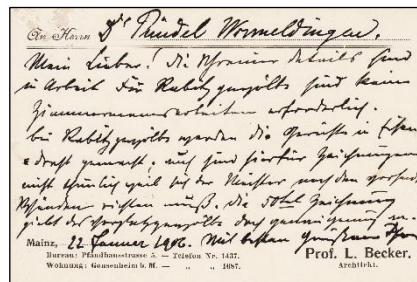 An Herrn Dr Ründel Wormeldingen.
Mein Lieber! Die Schreiner details sind
in Arbeit Für Rabitzgewölbe sind keine
Zimmermannsarbeiten erforderlich.
bei Rabitzgewölbe werden die Gerüste in Eisen
& draht gemacht, auch sind hierfür Zeichnungen
nicht thunlich weil sich der Meister nach den
richten muß. die 50tel Zeichnung
giebt das gewölbe doch genügend an.
Mainz, 22 Januar 1906. Mit besten Grüßen Ihr
Bureau: Pfandhausstrasse 5. — Telefon Nr. 1437.
Wohnung: Gonsenheim b. M. — „ „ 1687.
Prof. L. Becker.
Architekt.